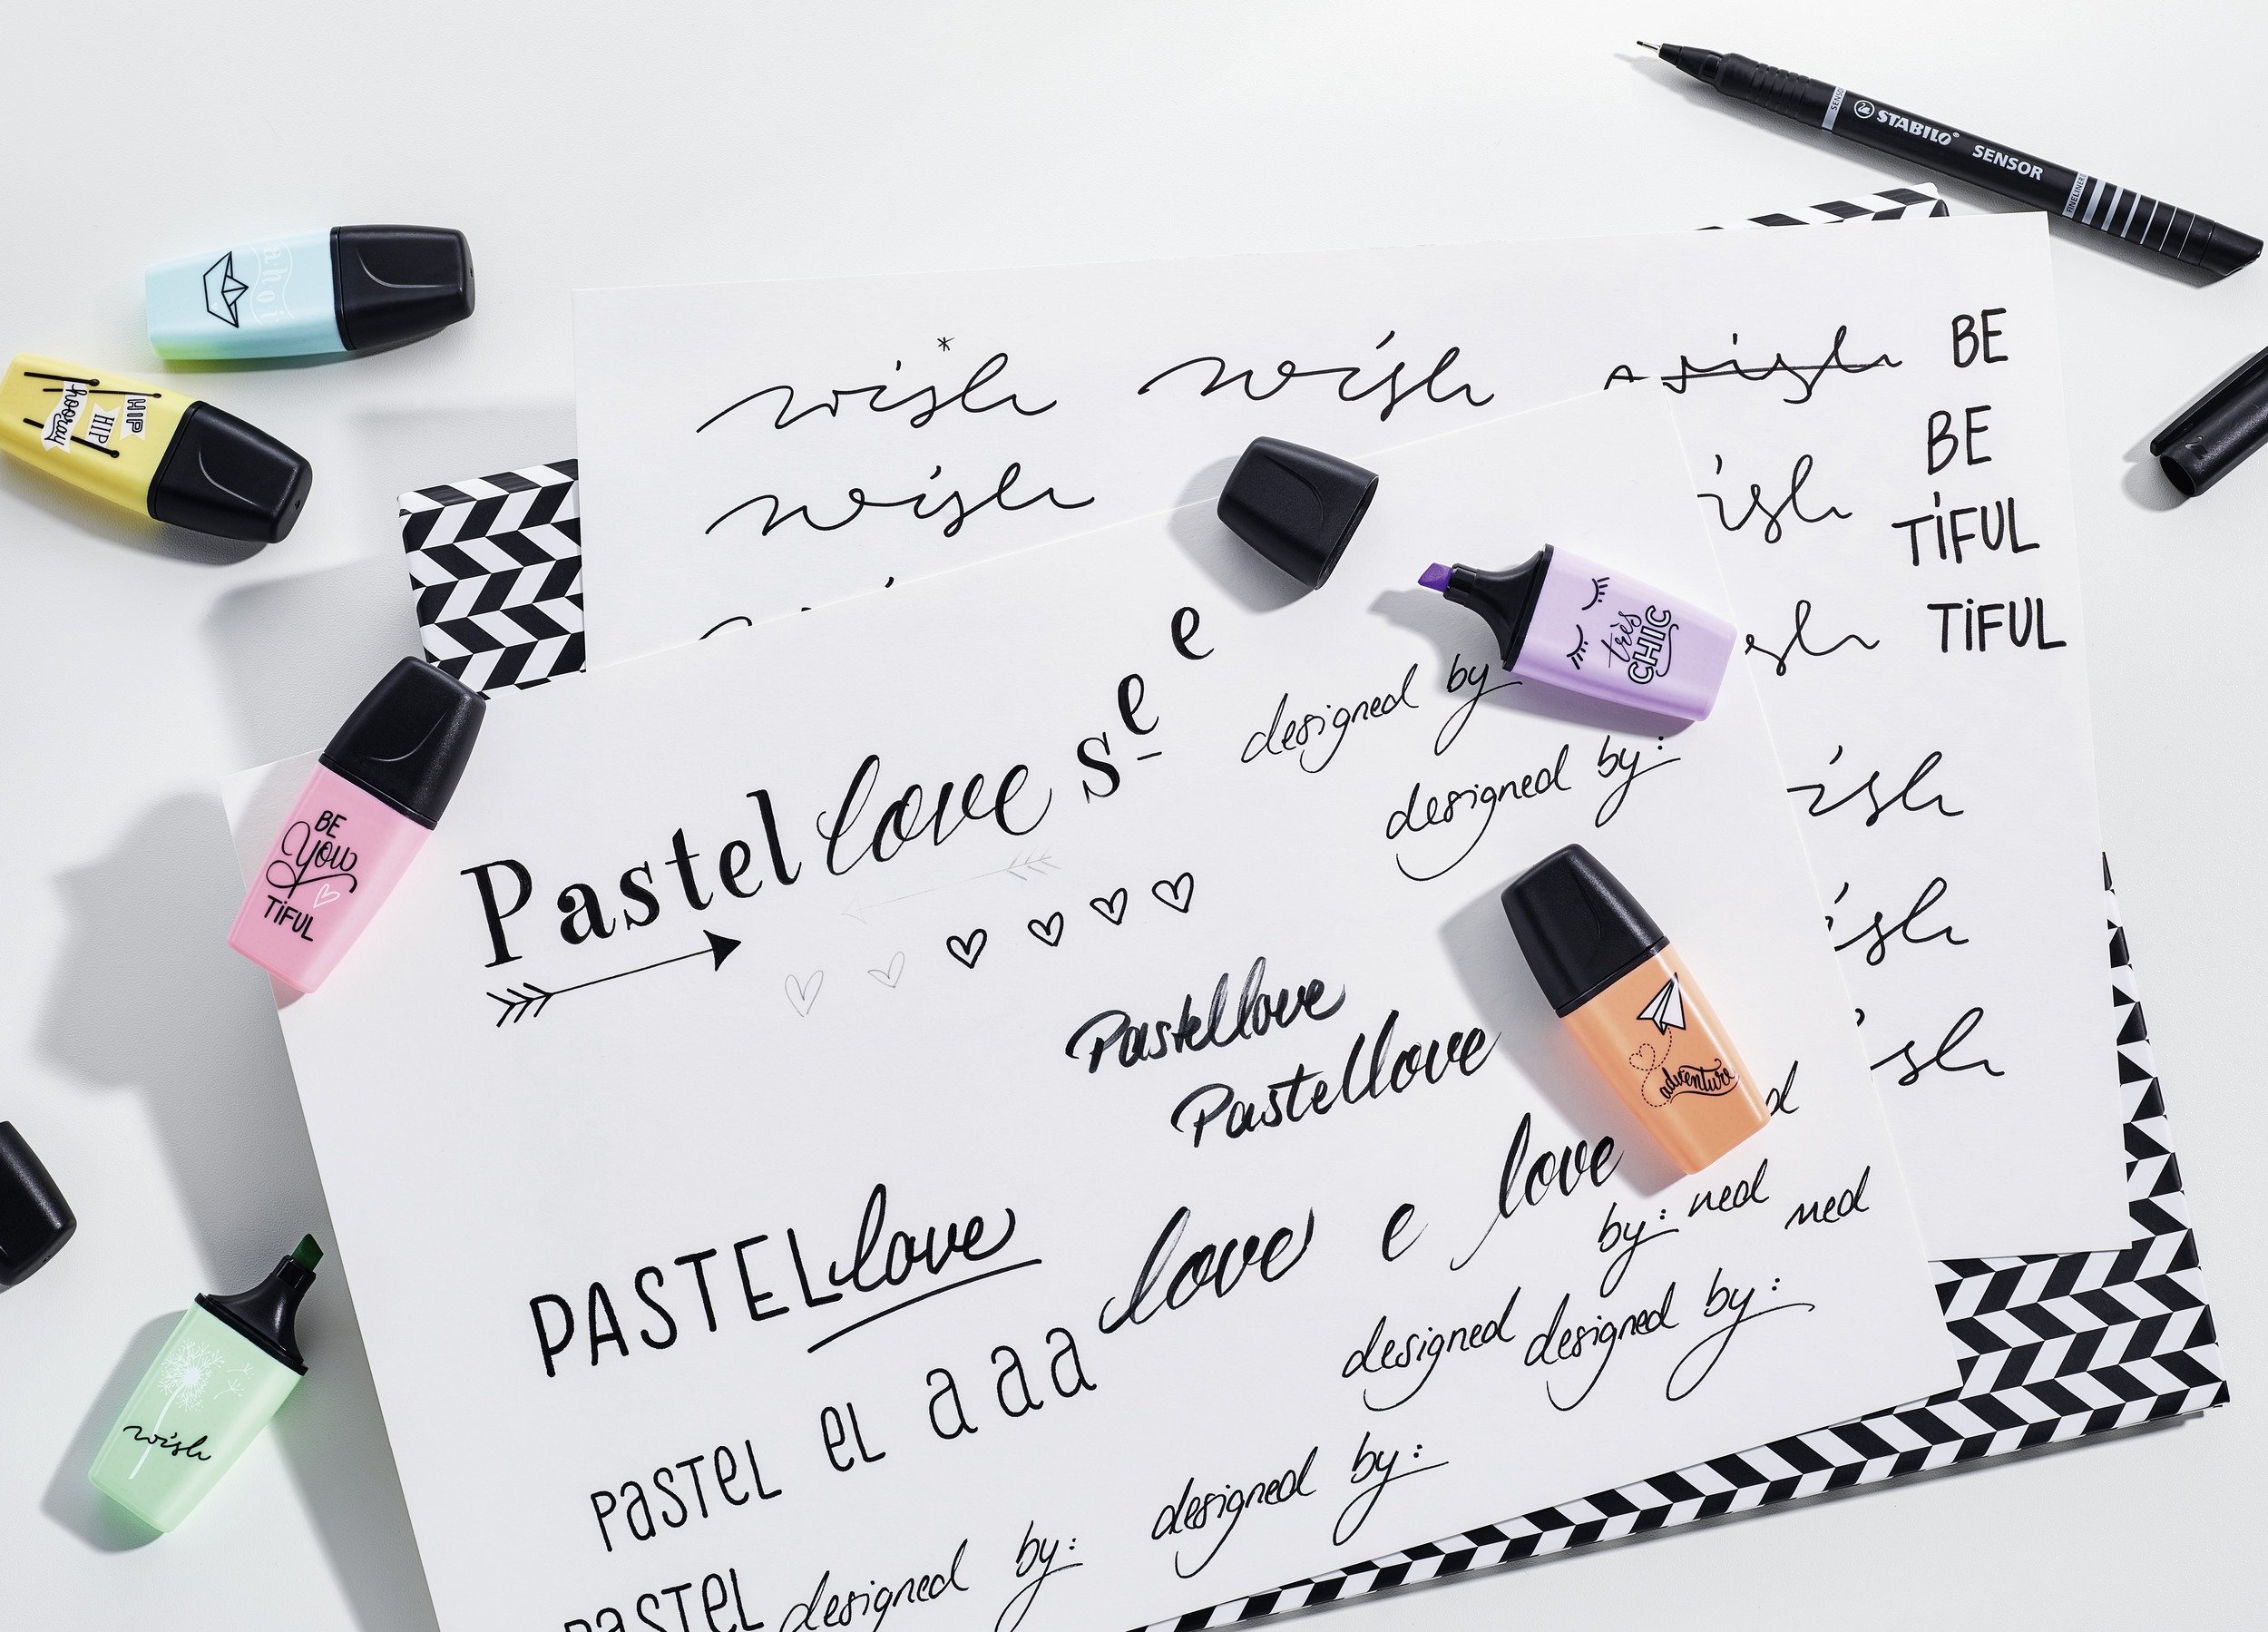 SENSOR
STABILO® SENSOR
FINELINER
ahoi
HIP
HIP
hooray
wish* wish wish BE
BE
wish ish TiFUL
sh TiFUL
ish
ish
ish
très
CHIC
designed by
designed by:
e
e
Pastel love s
BE
You
TiFUL
Pastellove
Pastellove
adventure
d
love e love
by: ned ned
PASTEL love
designed designed by:
PaSTeL eL a a a
designed by:
PaSTeL designed by:
wish